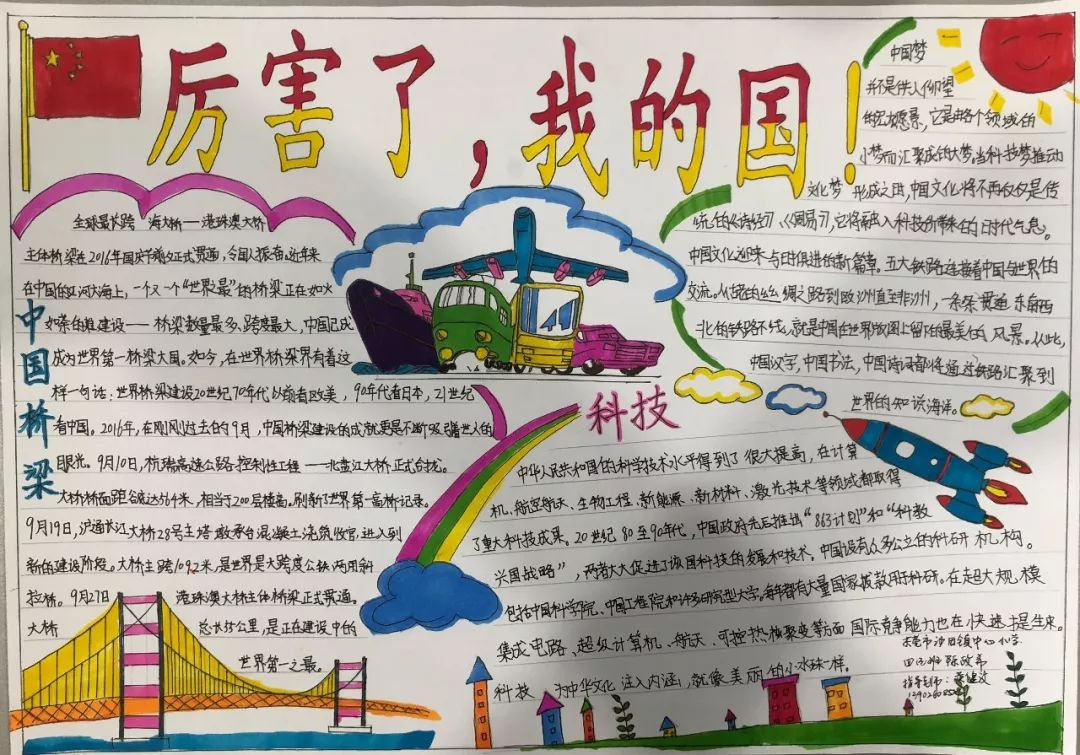 厉害了，我的国！
中国梦
并不是供人仰望
的宏大愿景，它是由各个领域的
小梦而汇聚成的大梦。当科技梦推动
文化梦 形成之时，中国文化将不再仅仅是传
统的《诗经》《周易》，它将融入科技创新的时代气息。
中国文化迎来与时俱进的新篇章。五大铁路连接着中国与世界的
交流。从古路的丝绸之路到欧洲直至非洲，一条条贯通东南西
北的铁路不线，就是中国在世界版图上留下的最美的风景。从此，
中国汉字，中国书法，中国诗词都将通过铁路汇聚到
世界的知识海洋。
全球最长跨 海大桥——港珠澳大桥
主体桥梁在2016年国庆节前夕正式贯通，令国人振奋。近年来
在中国的江河大海上，一个又一个“世界最”的桥梁正在如火
如荼的推建设——桥梁数量最多、跨度最大，中国已成
成为世界第一桥梁大国。如今，在世界桥梁界有着这
样一句话：世界桥梁建设20世纪70年代以前看欧美，90年代看日本，21世纪
看中国。2016年，在刚刚过去的9月，中国桥梁建设的成就更是不断吸引着世人的
眼光。9月10日，杭瑞高速公路控制性工程——北盘江大桥正式合拢。
大桥桥面距谷底达564米，相当于200层楼高。刷新了世界第一高桥记录。
9月19日，沪通长江大桥28号主塔墩承台混凝土浇筑收官，进入到
新的建设阶段。大桥主跨1092米，是世界最大跨度公铁两用斜
拉桥。9月27日 港珠澳大桥主体桥梁正式贯通。
大桥 总长55公里，是正在建设中的
世界第一之最。
中国桥梁
科技
中华人民共和国的科学技术水平得到了很大提高，在计算
机、航空航天、生物工程、新能源、新材料、激光技术等领域都取得
了重大科技成果。20世纪80至90年代，中国政府先后推出“863计划”和“科教
兴国战略”，两者大大促进了该国科技的发展和技术。中国设有众多公立的科研机构。
包括中国科学院、中国工程院和许多研究型大学。每年都有大量国家拨款用于科研。在超大规模
集成电路、超级计算机、航天、可控热核聚变等方面国际竞争能力也在快速提生来。
科技 为中华文化注入内涵，就像美丽的小水珠一样。
东莞市沙田镇中心小学
指导老师：